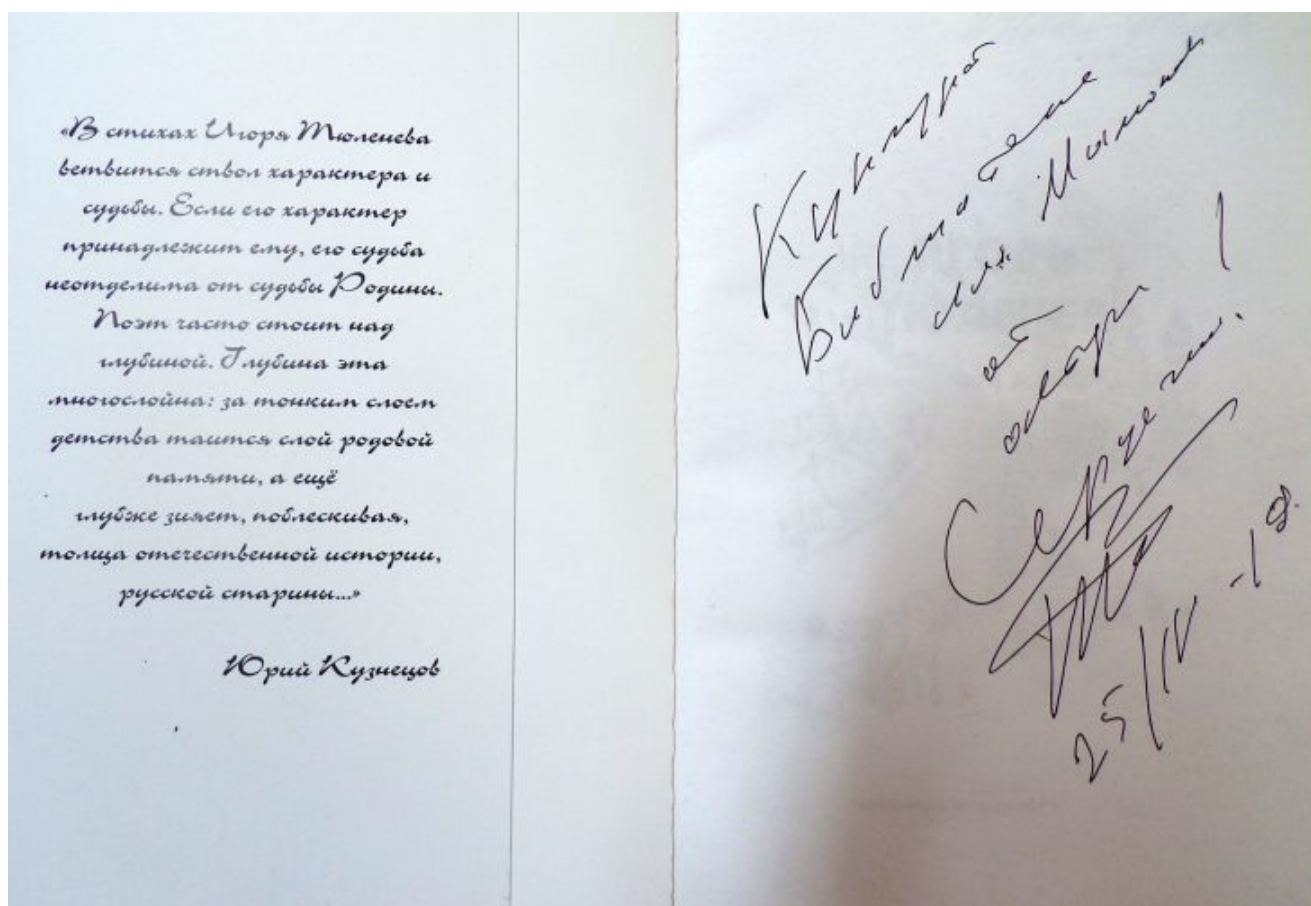 «В стихах Игоря Тюленева
ветвится ствол характера и
судьбы. Если его характер
принадлежит ему, его судьба
неотделима от судьбы Родины.
Поэт часто стоит над
глубиной. Глубина эта
многослойна: за тонким слоем
детства таится слой родовой
памяти, а ещё
глубже зияет, поблескивая,
толща отечественной истории,
русской старины...»
Юрий Кузнецов
Библиотеке
от
!
Сердечно.
25/IV -18.